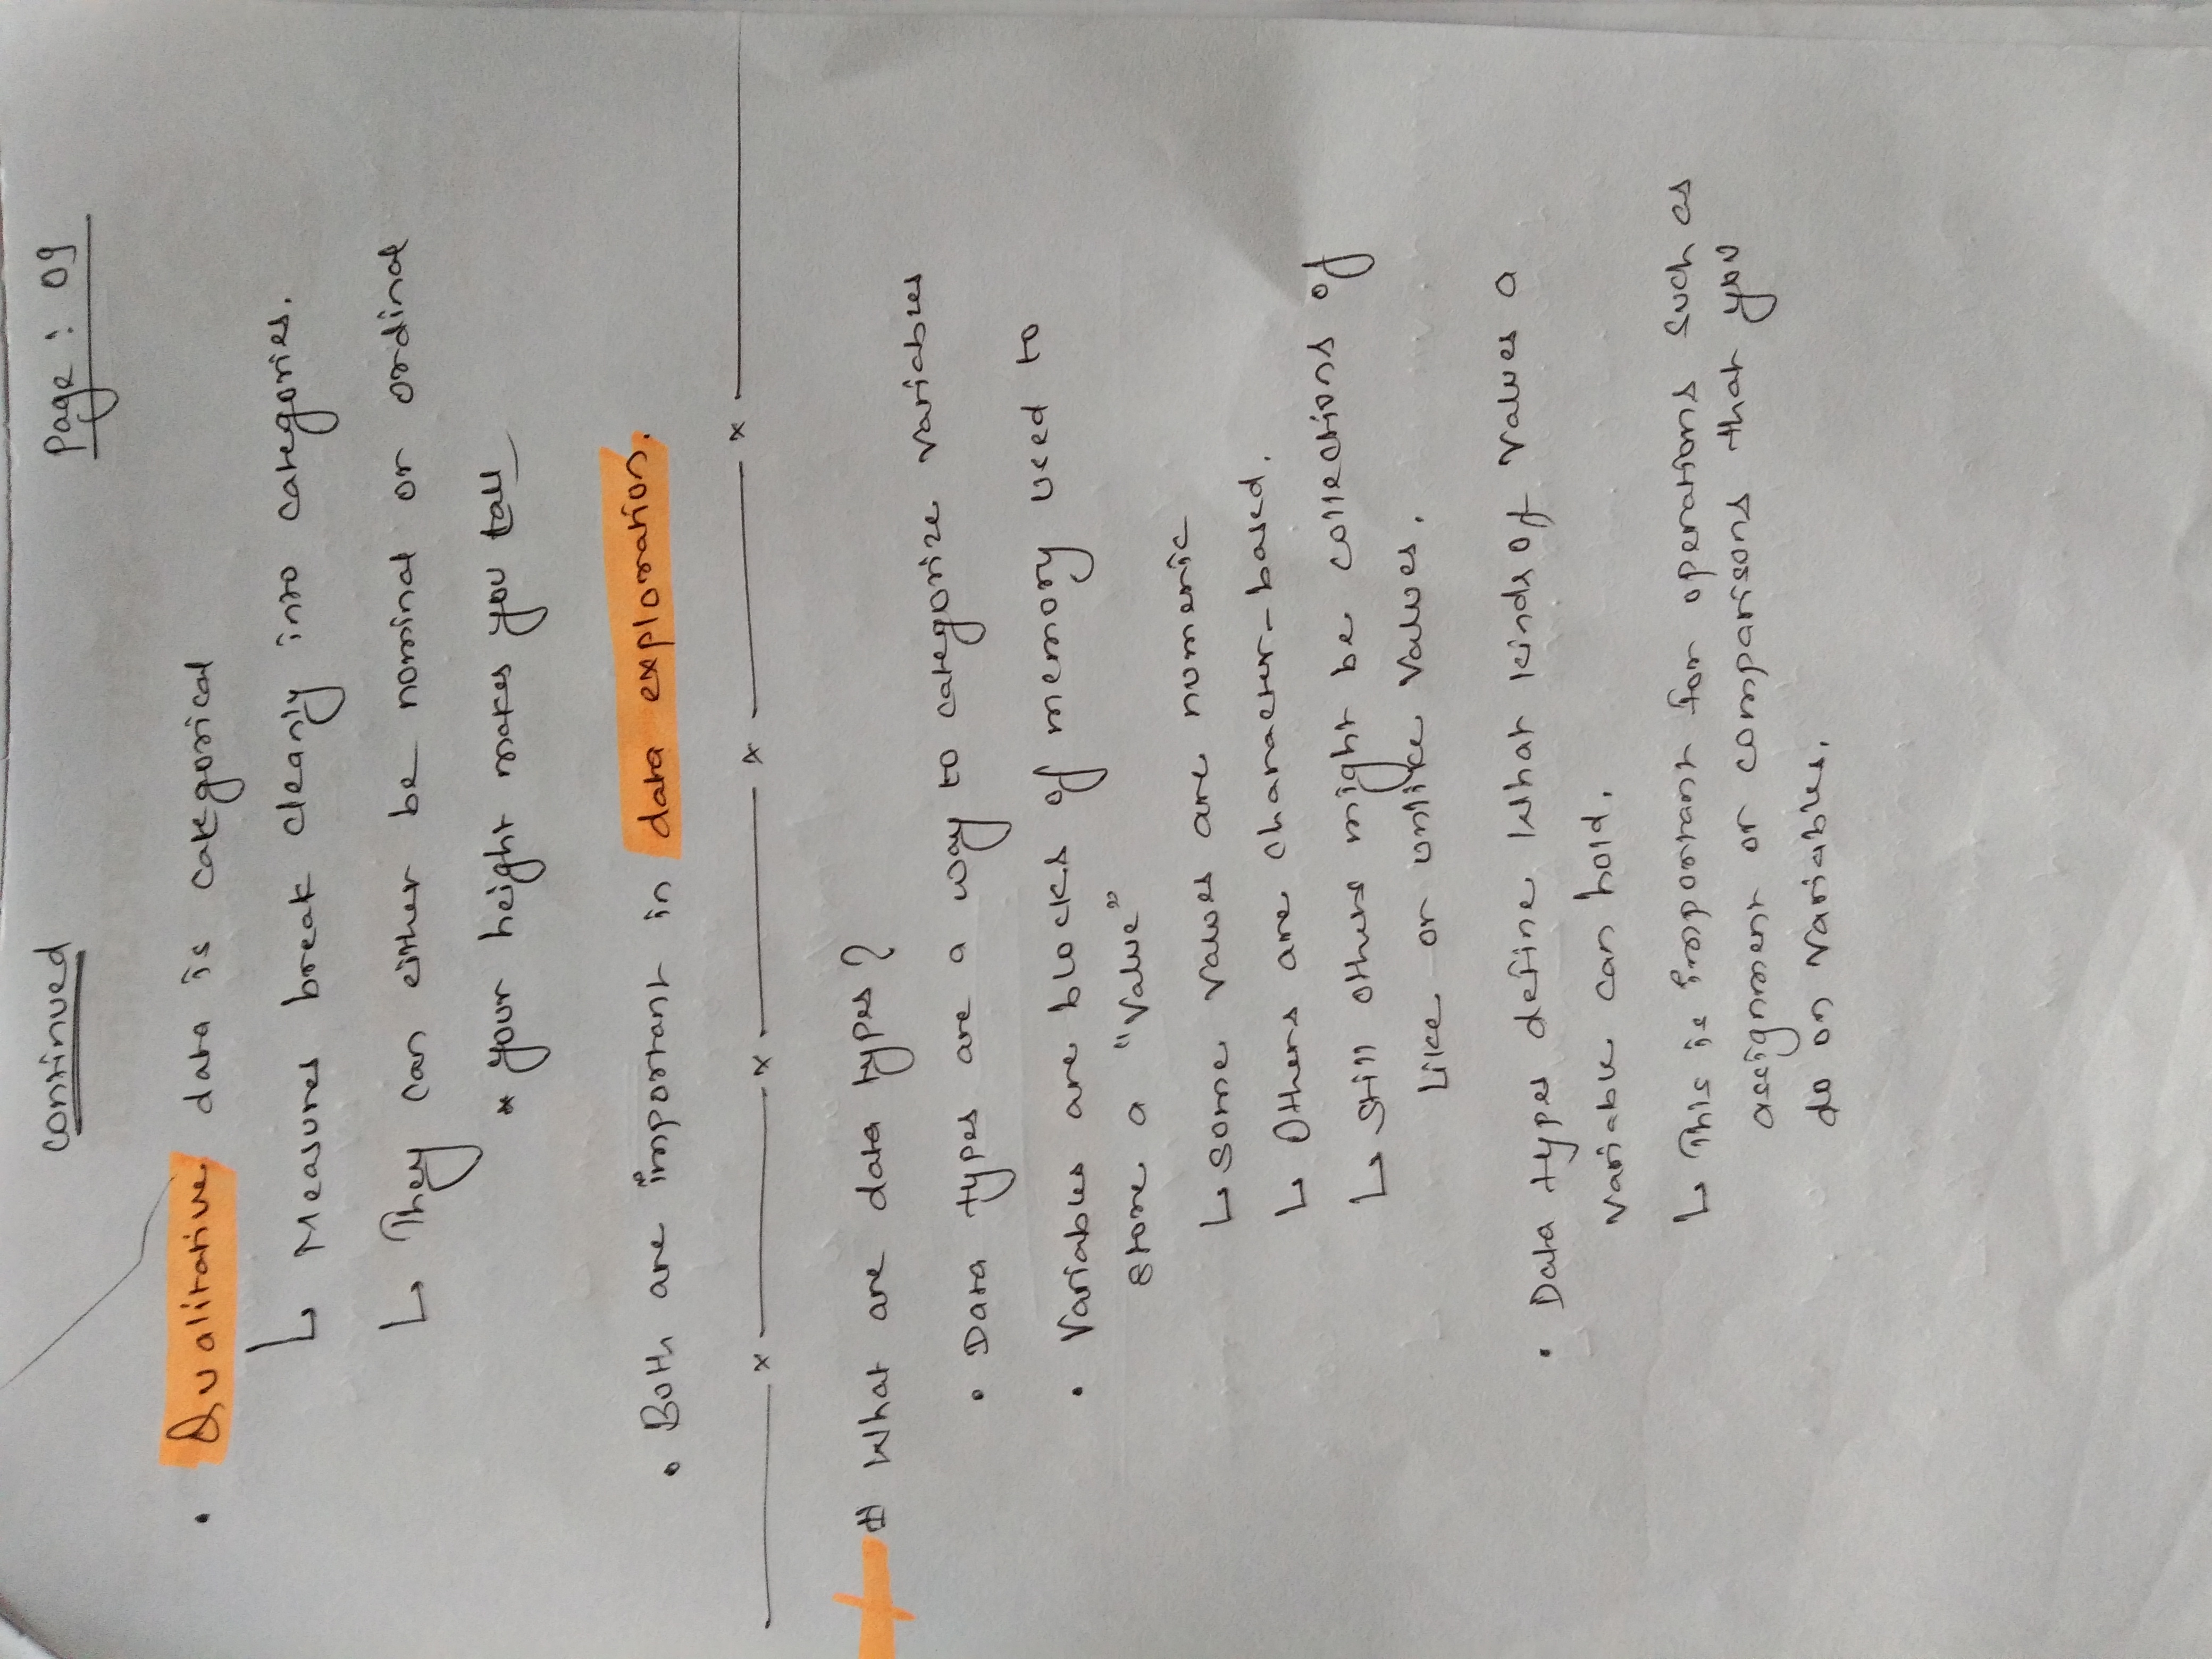 Continued Page : 09
• Qualitative data is categorical
↳ Measures break cleanly into categories.
↳ They can either be nominal or ordinal
* your height makes you tall
• Both are important in data exploration.
# What are data types?
• Data types are a way to categorize variables
• Variables are blocks of memory used to
store a "value"
↳ Some values are numeric
↳ Others are character-based.
↳ Still others might be collections of
like or unlike values.
• Data types define what kinds of values a
variable can hold.
↳ This is important for operations such as
assignment or comparisons that you
do on variables.